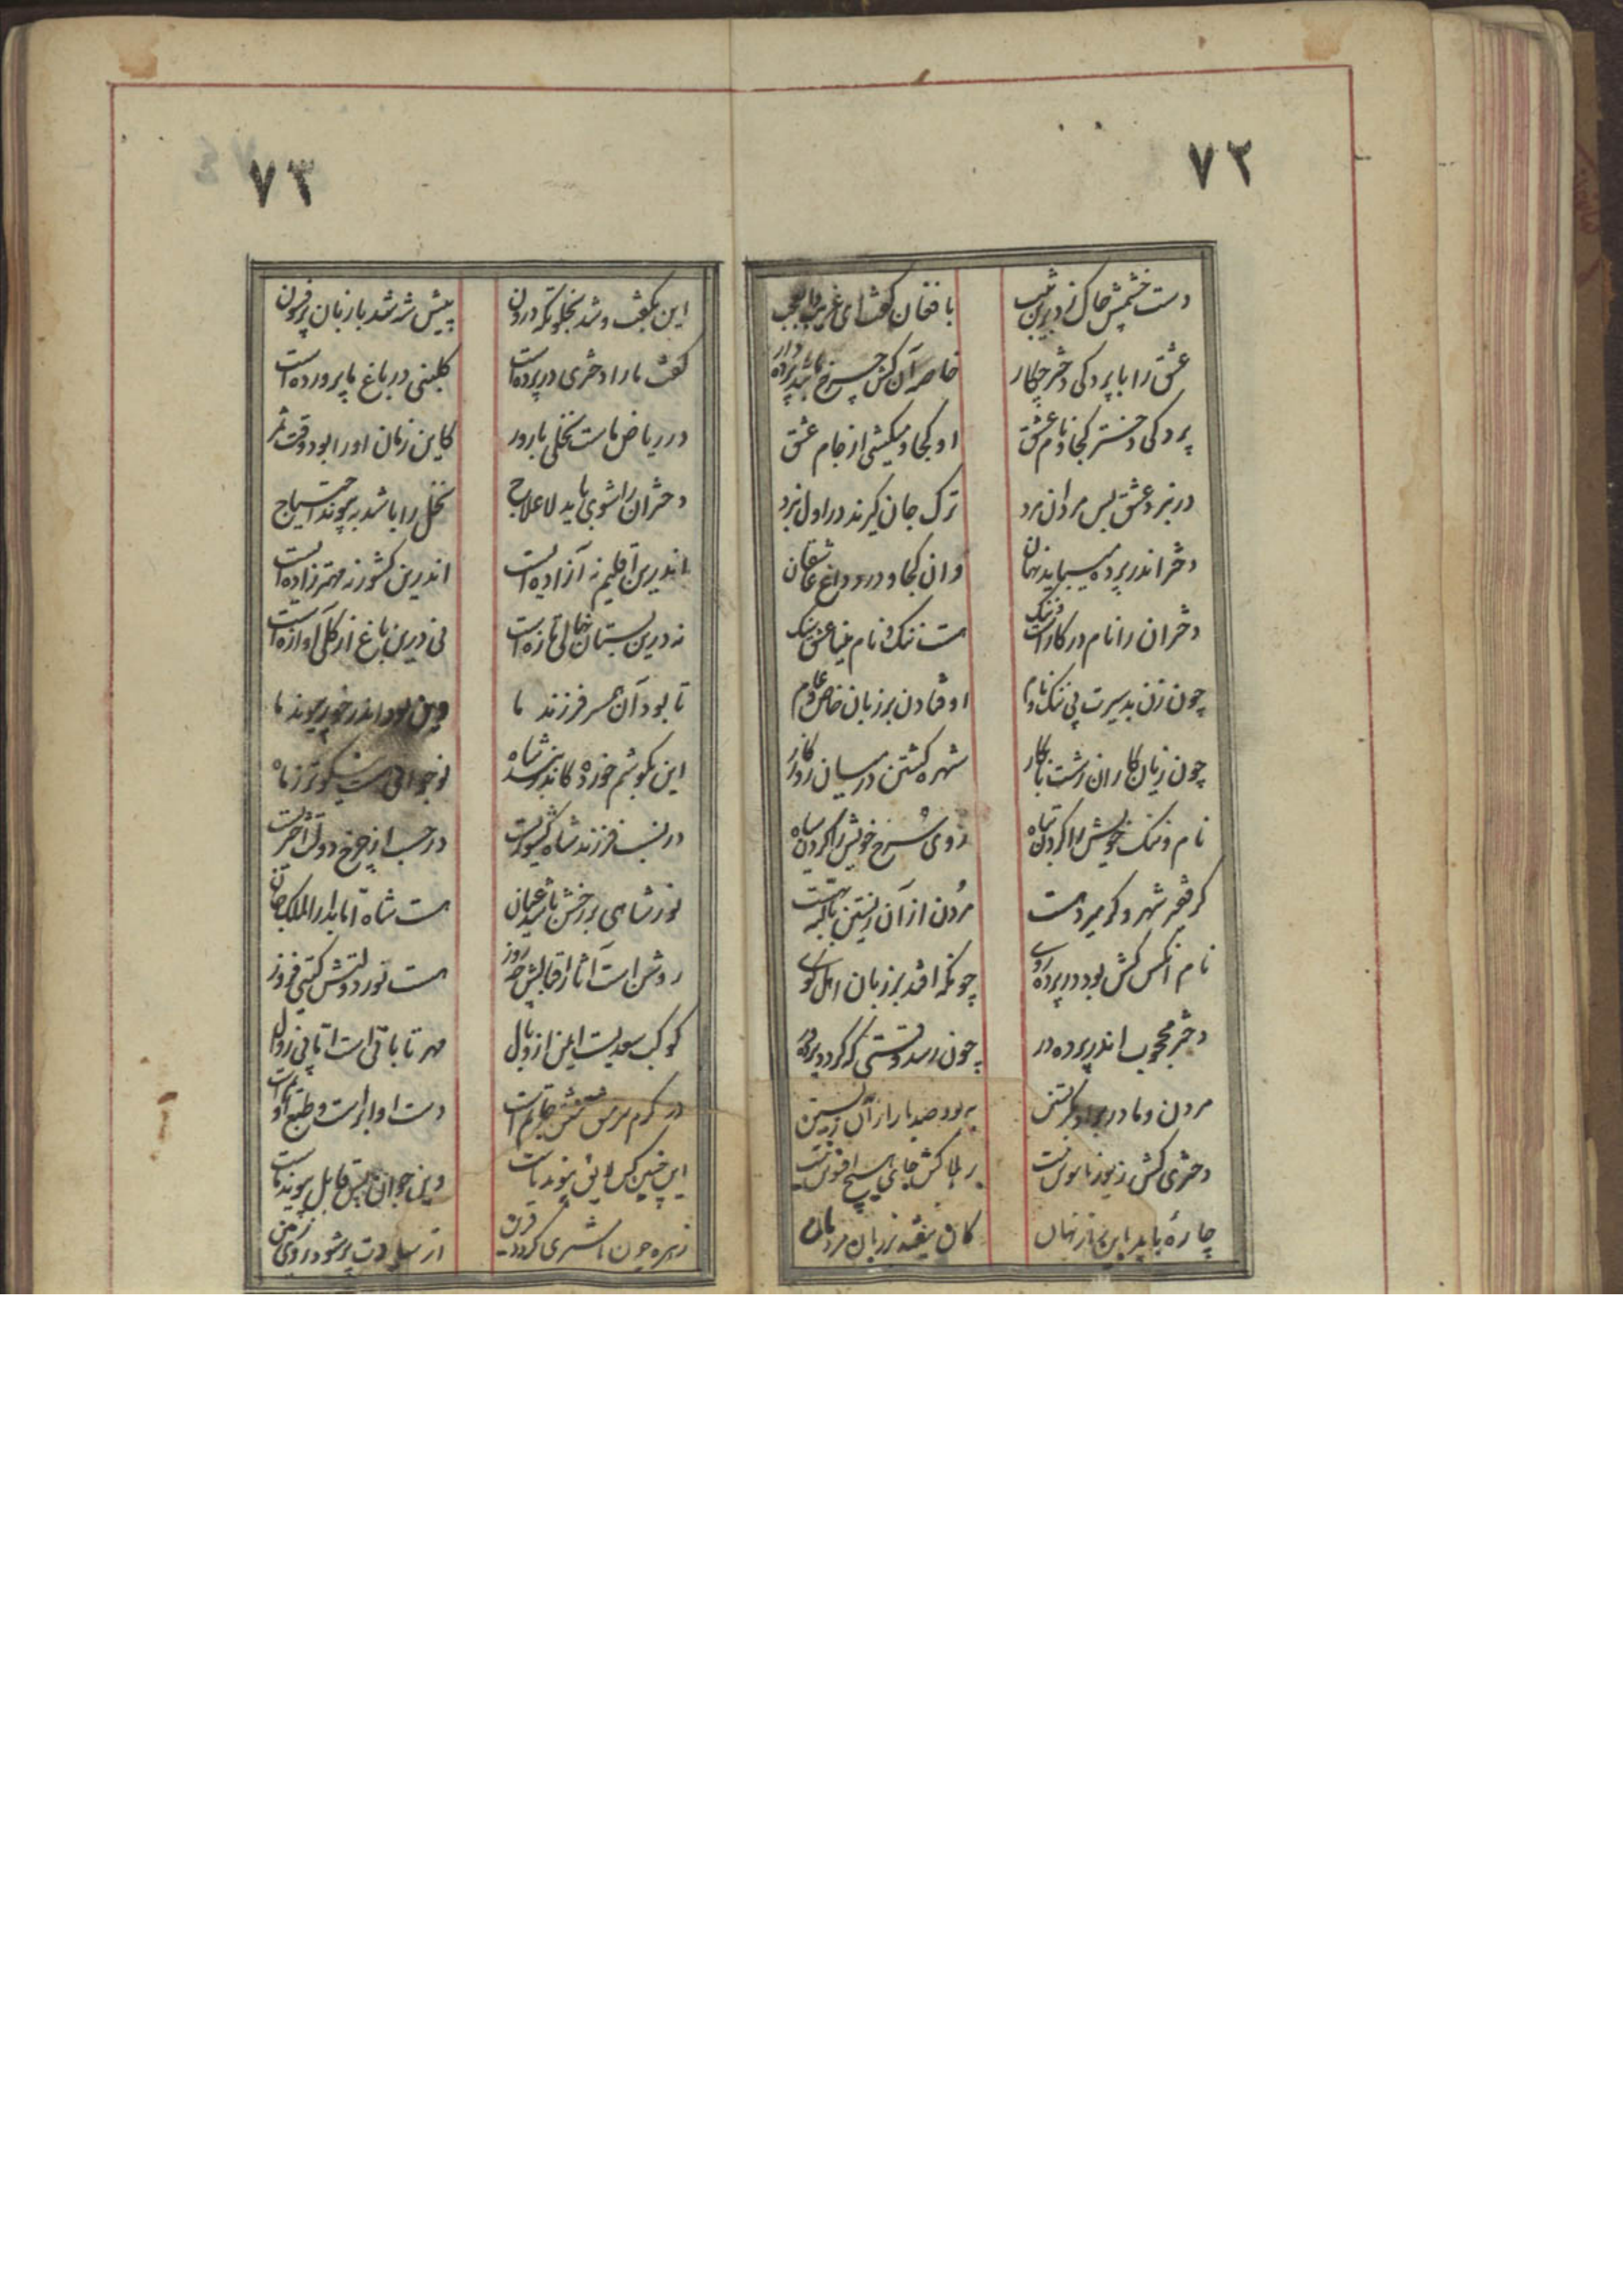 ۷۲
دست خشمش چاک زد پیراهن شب
با فغان گفت ای غریب وای عجب
عشق را با پردگی دختر چکار
خاصه آن کش چرخ باشد پرده دار
پردگی دختر کجا و نام عشق
او کجا و میکشی از جام عشق
در نبرد عشق بس مردان مرد
ترک جان گیرند در اول نبرد
دختر اندر پرده میباید نهان
وان کجا و درد و داغ عاشقان
دختران را نام در کار است و ننگ
هست ننگ و نام مینا عشق سنگ
چون زن بد سیرت بی ننگ و نام
اوفتادن بر زبان خاص و عام
چون زیان کاران زشت نابکار
شهره گشتن در میان روزگار
نام و ننگ خویش را کردن تباه
روی سرخ خویش را کردن سیاه
گر فقر شهر و گر میر ده است
مردن از آن زیستن بالله به است
نام آنکس کش بود در پرده روی
چونکه افتد بر زبان اهل کوی
دختر محجوب اندر پرده در
چون رسد وقتی که گردد پرده در
مردن و مادر بر او بگریستن
به بود صد بار از آن زیستن
دختری کش زیور ناموس نیست
بر هلاکش جای هیچ افسوس نیست
چاره باید باین راز نهان
کان نیفتد بر زبان مردمان
۷۳
این بگفت و شد بخلوتگه درون
پیش شه شد با زبان پر فسون
گفت ما را دختری در پرده است
گلبنی در باغ ما پرورده است
در ریاض ماست نخلی بارور
کاین زمان او را بود وقت ثمر
دختران را شوی باید لاعلاج
نخل را باشد به پیوند احتیاج
اندرین اقلیم نه آزاده ایست
اندرین کشور نه مهتر زاده ایست
نه درین بستان نهالی تازه است
نی درین باغ از گلی آوازه است
تا بود آن همسر فرزند ما
وین بود اندر خور پیوند ما
این بگوشم خورده کاندر بند شاه
نوجوانی هست نیکوتر ز ماه
در نسب فرزند شاه کشوریست
در حسب از چرخ دولت اختریست
نور شاهی بر رخش باشد عیان
هست شاه اما بدار الملک جان
روشن است آثار اقبالش چو روز
هست نور دولتش گیتی فروز
کوکب سعدیست ایمن از وبال
مهر تابانی است اما بی زوال
در کرم
دست او ابر است و طبع او یم است
این چنین کس لایق پیوند ماست
وین جوان بس قابل پیوند ماست
زهره چون با مشتری گردد قرین
از سعادت پر شود روی زمین